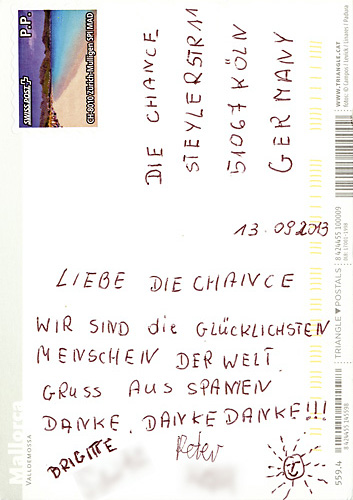 P.P.
SWISS POST
CH-8010 Zürich-Mülligen SPI MAD
DIE CHANCE
STEYLERSTR 11
51067 KÖLN
GERMANY
13.09.2013
LIEBE DIE CHANCE
WIR SIND die GLÜCKLICHSTEN
MENSCHEN DER WELT
GRUSS AUS SPANIEN
DANKE, DANKE DANKE!!!
BRIGITTE
Peter
Mallorca
VALLDEMOSSA
WWW.TRIANGLE.CAT
TRIANGLE ♥ POSTALS
8 424455 100009
559.4
8 424455 145598